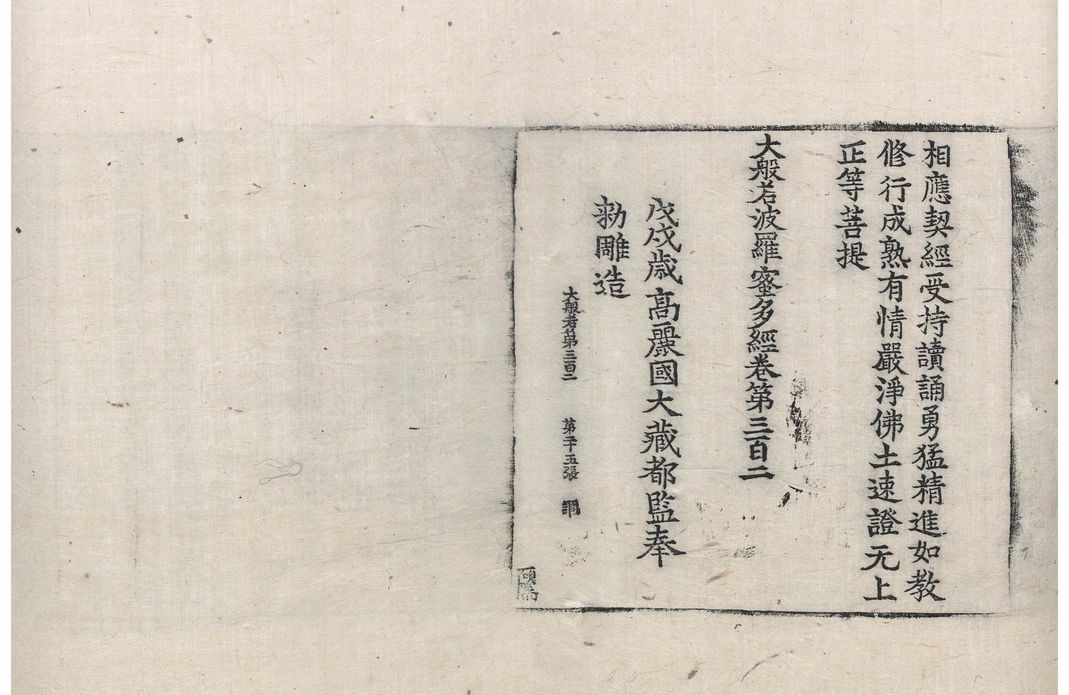 相應契經受持讀誦勇猛精進如教
修行成熟有情嚴淨佛土速證无上
正等菩提
大般若波羅蜜多經卷第三百二
戊戌歲高麗國大藏都監奉
勅雕造
大般若第三百二 第二十五張